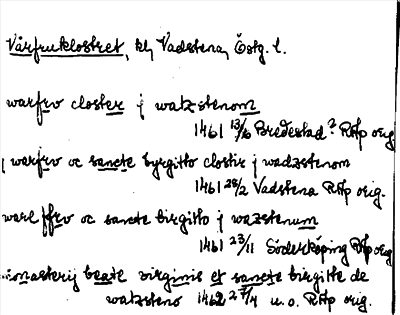 Vårfruklostret, kl, Vadstena, Östg. l.
warfrv closter j watzstenom
1461 13/6 Bredestad? RAp orig
j warfrv oc sancte byrgitto closter j wadzstenom
1461 28/2 Vadstena RAp orig.
warl ffrv oc sancte birgitto j wazstenum
1461 23/11 Söderköping RAp orig
monasterij beate virginis et sancte birgitte de
watzsteno 1462 27/4 u.o. RAp orig.